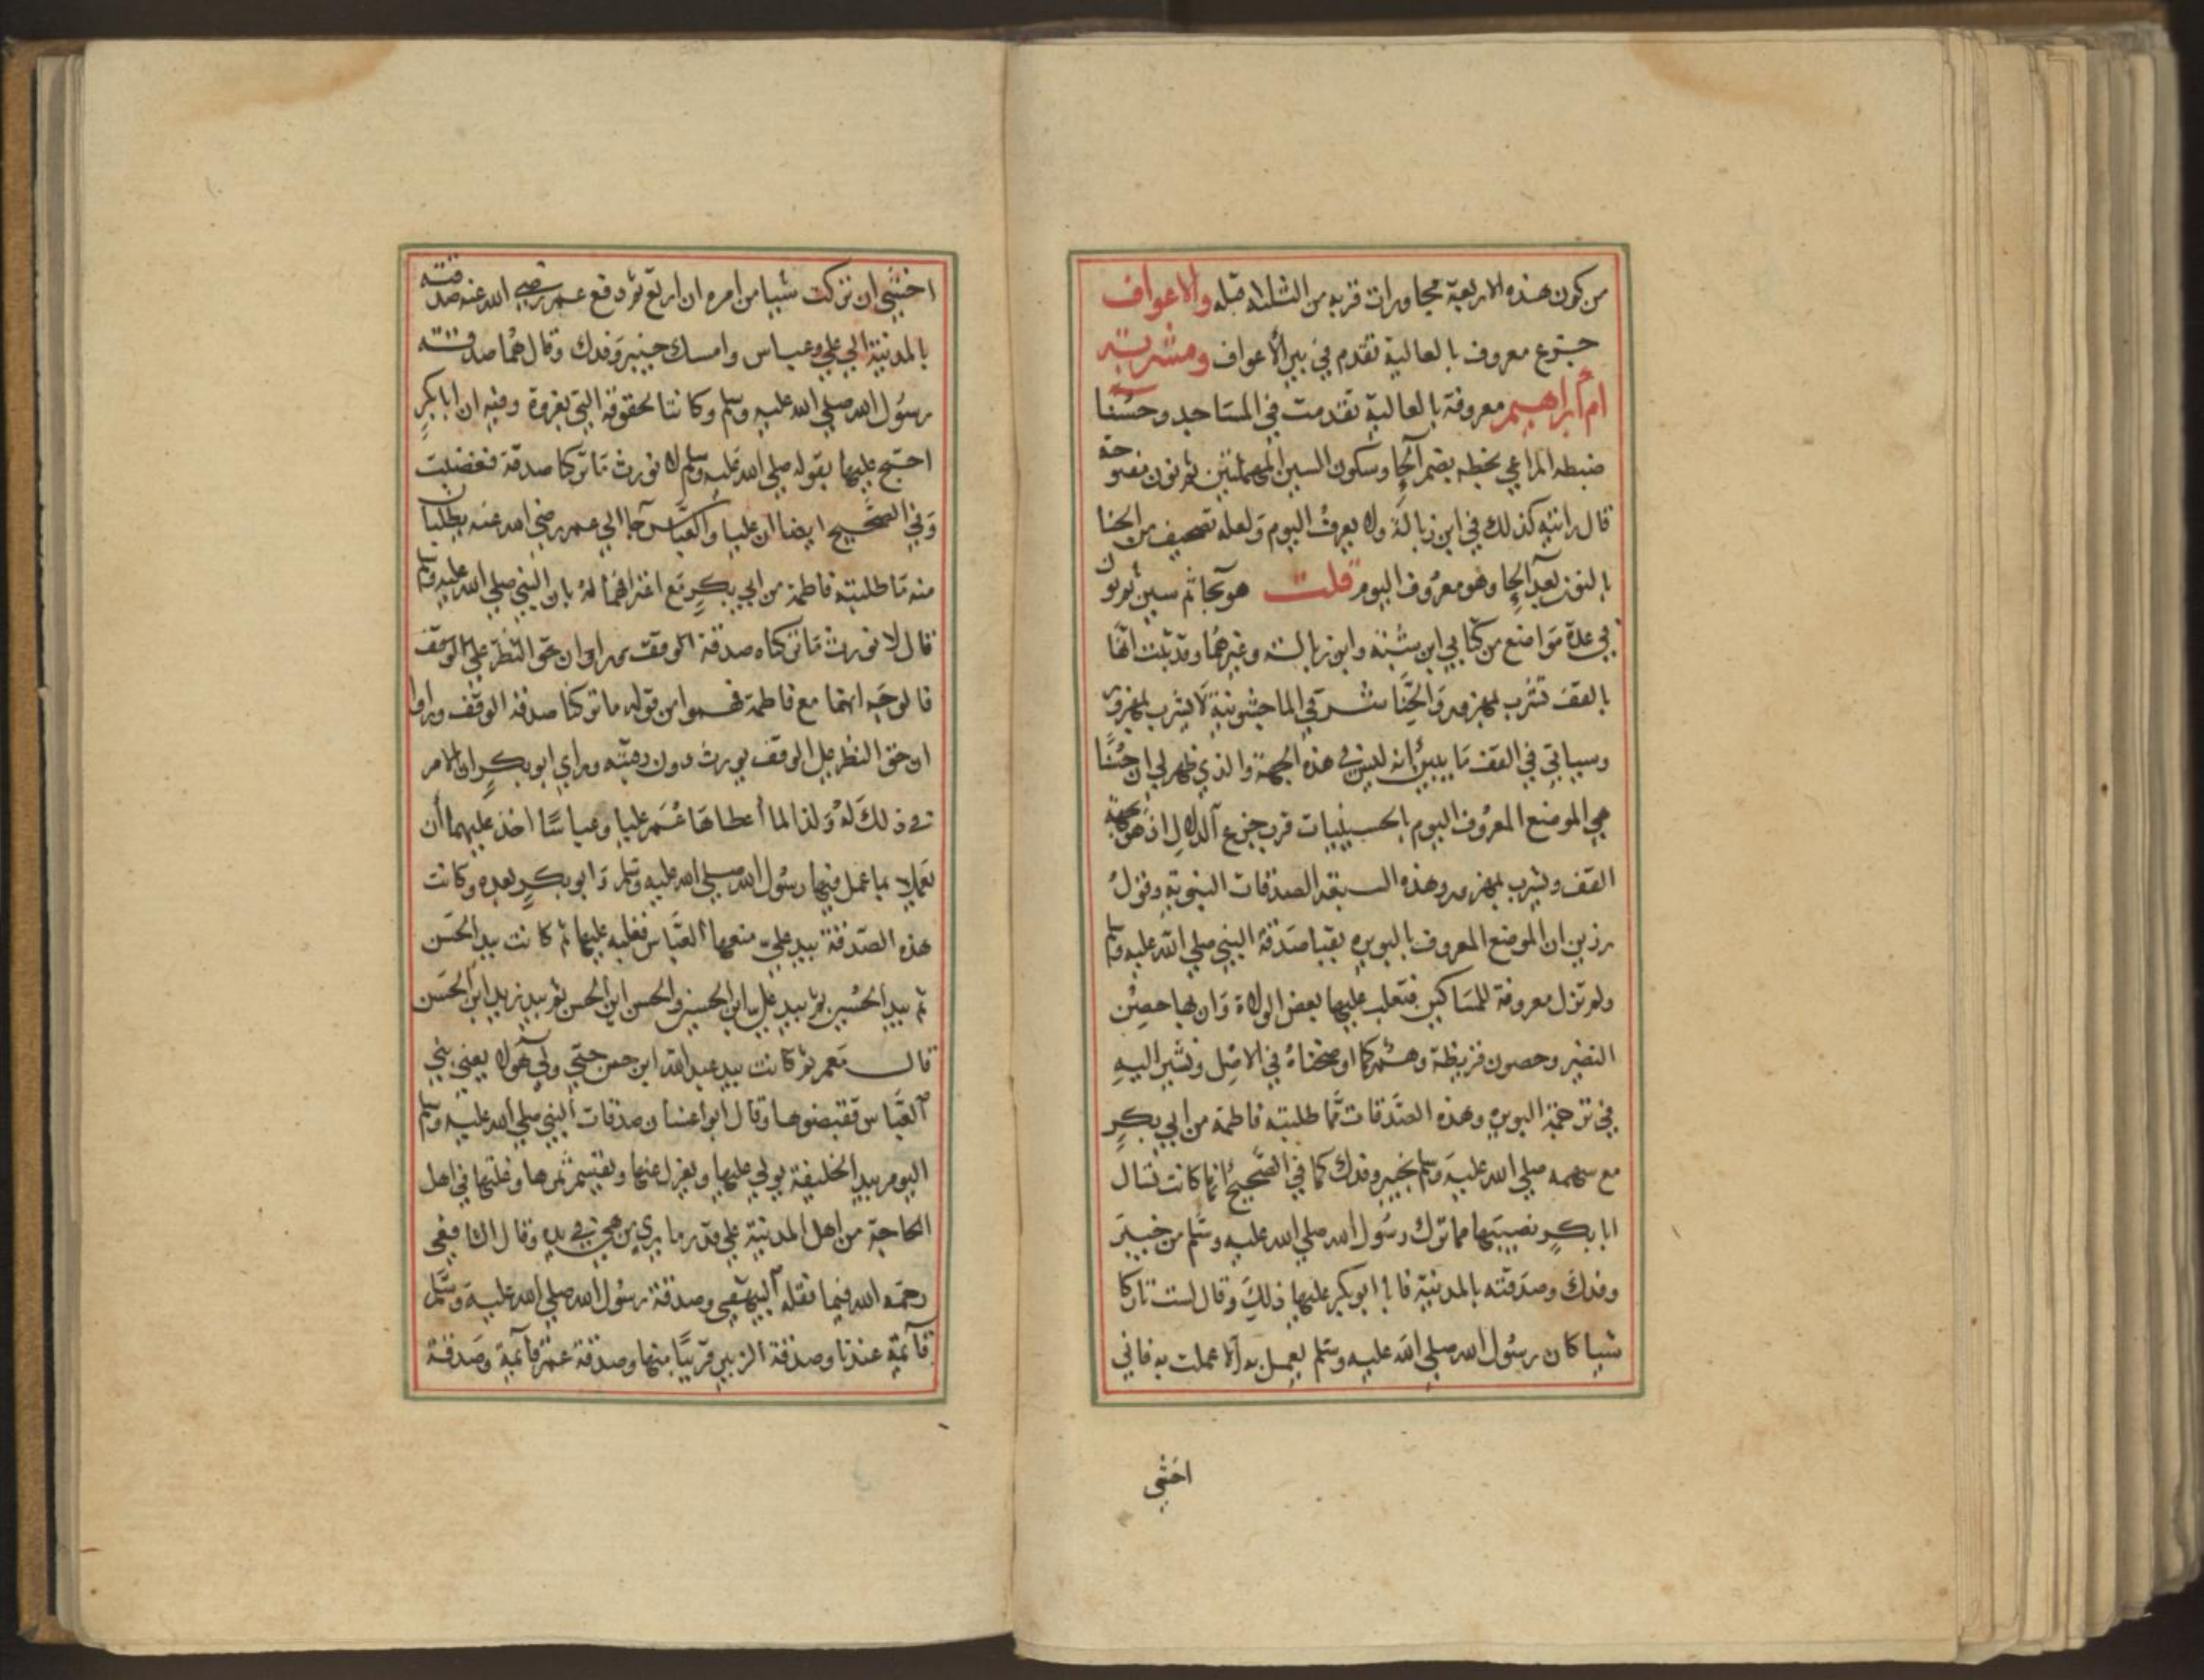 من كون هذه الاربعة مجاورات قربه من الثلاثة قبله والاعواف
جزع معروف بالعالية تقدم في بير الأعواف ومشربة
ام ابراهيم معروفة بالعالية تقدمت في المساجد وحسنا
ضبطه المراغي بخطه بضم الحا وسكون السين المهملتين ثم نون مفتوحة
قال رايته كذلك في ابن زبالة ولا يعرف اليوم ولعله تصحيف من الحنا
بالنون بعد الحا وهو معروف اليوم قلت هو بحا ثم سين ثم نون
في عدة مواضع من كتابي ابن شبه وابن زبالة وغيرهما وقد ثبت انها
بالقف تشرب بمهزور والحنا شرقي الماجشونية لا يشرب بمهزور
وسياتي في القف ما يبين انه ليس في هذه الجهة والذي ظهر لي ان حسنا
هي الموضع المعروف اليوم بالحسينيات قرب جزع الدلال اذ هو بجهة
القف ويشرب بمهزور وهذه السبعة الصدقات النبوية وقول
رزين ان الموضع المعروف بالبويره بقبا صدقة النبي صلي الله عليه وسلم
ولم تزل معروفة للمساكين فتغلب عليها بعض الولاة وان بها حصين
النضير وحصون قريظة وهم كما اوضحناه في الاصل ونشير اليه
في ترجمة البويره وهذه الصدقات مما طلبته فاطمة من ابي بكر
مع سهمه صلي الله عليه وسلم بخيبر وفدك كما في الصحيح انها كانت تسال
ابا بكر نصيبها مما ترك رسول الله صلي الله عليه وسلم من خيبر
وفدك وصدقته بالمدينة فابا ابو بكر عليها ذلك وقال لست تاركا
شيا كان رسول الله صلي الله عليه وسلم يعمل به الا عملت به فاني
اخشي
اخشي ان تركت شيا من امره ان ازيغ ثم دفع عمر رضي الله عنه صدقته
بالمدينة الي علي وعباس وامسك خيبر وفدك وقال هما صدقة
رسول الله صلي الله عليه وسلم وكانتا لحقوقه التي تعروة وفيه ان ابا بكر
احتج عليها بقوله صلي الله عليه وسلم لا نورث ما تركنا صدقة فغضبت
وفي الصحيح ايضا ان عليا والعباس جاا الي عمر رضي الله عنه يطلبان
منه ما طلبته فاطمة من ابي بكر مع اعترافهما له بان النبي صلي الله عليه وسلم
قال لا نورث ما تركناه صدقة الوقف وراو ان حق النظر علي الوقف
فالوجه انهما مع فاطمة فهموا من قوله ما تركنا صدقة الوقف وراوا
ان حق النظر علي الوقف يورث دون رقبته وراي ابو بكر ان الامر
في ذلك له ولذا لما أعطاها عمر عليا وعباسا اخذ عليهما أن
يعملا بما عمل فيها رسول الله صلي الله عليه وسلم وابو بكر بعده وكانت
هذه الصدقة بيد علي منعها العباس فغلبه عليها ثم كانت بيد الحسن
ثم بيد الحسين ثم بيد علي ابن الحسين والحسن ابن الحسن ثم بيد زيد ابن الحسن
قال معمر ثم كانت بيد عبد الله ابن حسن حتي ولي هولا يعني بني
العباس فقبضوها وقال ابو غسان صدقات النبي صلي الله عليه وسلم
اليوم بيد الخليفة يولي عليها ويعزل عنها ويقسم ثمرها وغلتها في اهل
الحاجة من اهل المدينة علي قدر ما يري من هي في يده وقال الشافعي
رحمه الله فيما نقله البيهقي وصدقة رسول الله صلي الله عليه وسلم
قايمة عندنا وصدقة الزبير قريبا منها وصدقة عمر قايمة وصدقة